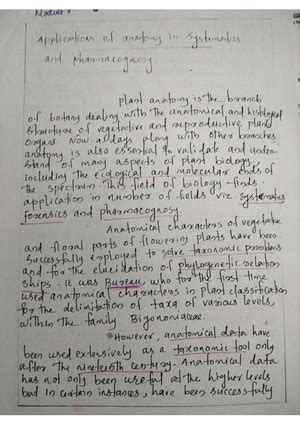 Module 7
Applications of anatomy in systematics
and pharmacognosy
plant anatomy is the branch
of botany dealing with the anatomical and histological
structure of vegetative and reproductive plant
organs. Now-a-days along with other branches
anatomy is also essential to validate and under-
stand of many aspects of plant biology,
including the ecological and molecular ends of
the spectrum. This field of biology finds
application in number of fields viz systematics
forensics and pharmacognosy.
Anatomical characters of vegetative
and floral parts of flowering plants have been
successfully employed to solve taxonomic problems
and for the elucidation of phylogenetic relation
ships. It was Bureau, who for the first time
used anatomical characters in plant classification
for the delimitation of taxa of various levels,
within the family Bigoniaceae.
However, anatomical data have
been used extensively as a taxonomic tool only
after the nineteenth century. Anatomical data
has not only been useful at the higher levels
but in certain instances, have been successfully